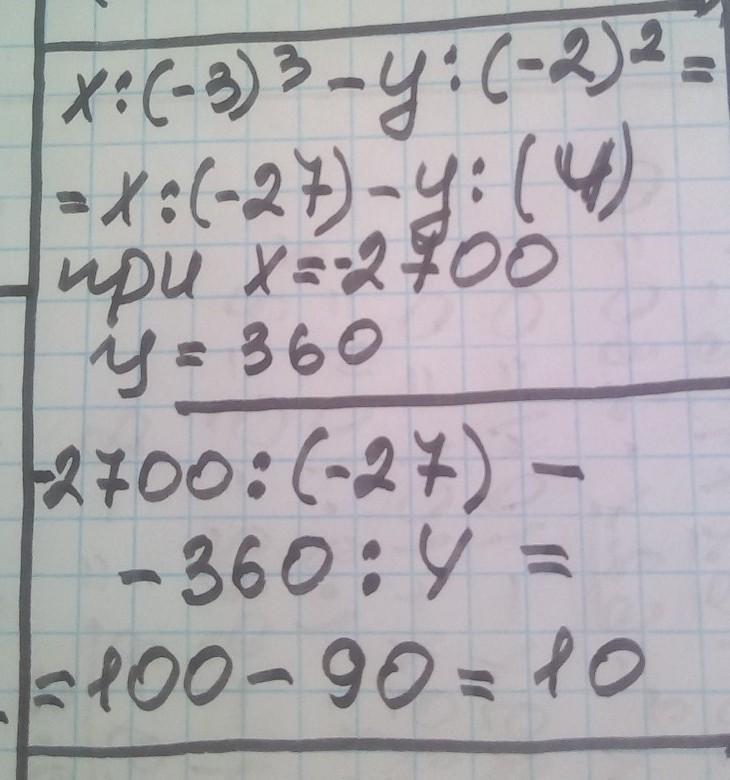 x:(-3)³-y:(-2)²=
=x:(-27)-y:(4)
при x=-2700
y=360
-2700:(-27)-
-360:4=
=100-90=10